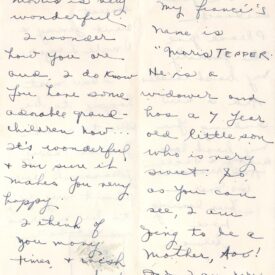 Morris is very
wonderful
I wonder
how you are
and, I do know
you have some
adorable grand-
children now...
it's wonderful
& I'm sure it
makes you very
happy.
I think of
you many
times, & wish
My fiancé's
name is
"Morris TEPPER.
He is a
widower and
has a 7 year
old little son
who is very
sweet. So
as you can
see, I am
going to be a
mother, too!